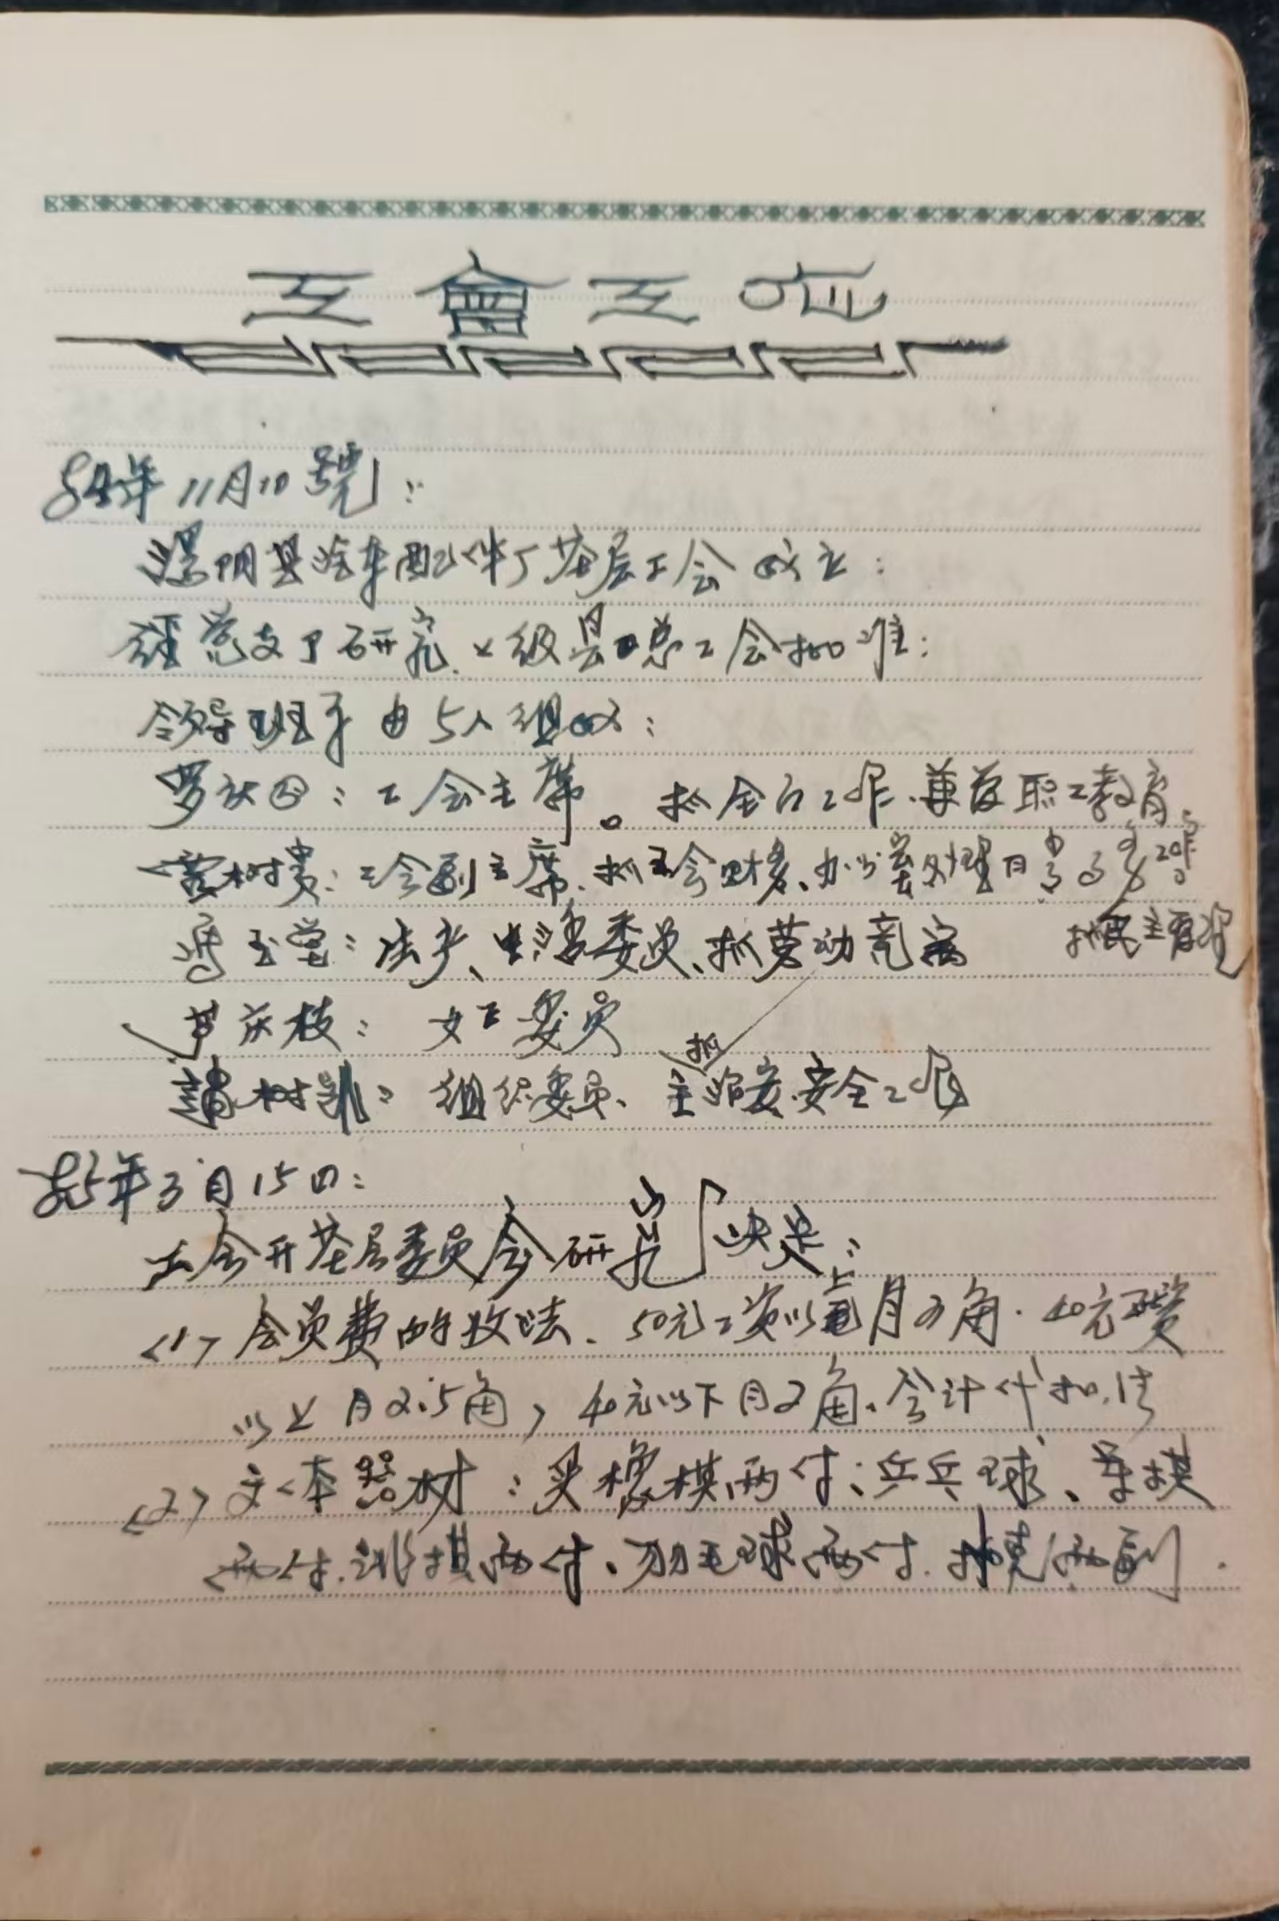 工會工作
84年11月10號:
汤阴县汽车配件厂基层工会成立:
經党支了研究.上级县总工会批准:
领导班子由5人组成:
罗庆 :工会主席。抓全面工作.兼管职工教育.
树贵:工会副主席.抓工会财务、办公室处理日常事务工作
冯玉堂:法 、生活委员、抓劳动竞赛 抓民主管理
庆枝:女工委员
树 :组织委员、主抓治安安全工作
85年3月15日:
工会开基层委员会研究决定:
<1>会员费的收法.50元工资以上月3角.40元工资
以上月2.5角,40元以下月2角.会计代扣.
<2>文体器材:买橡棋两付;乒乓球、军棋
两付.跳棋两付、羽毛球两付.扑克两副.